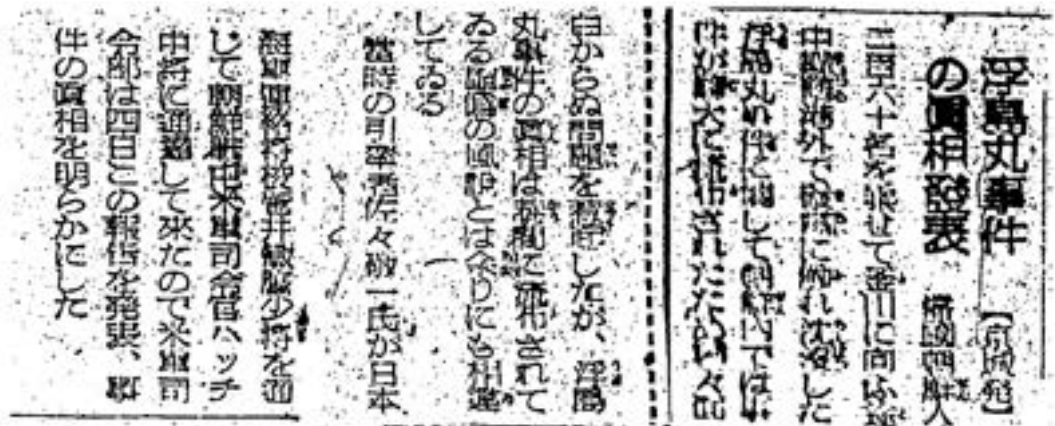 浮島丸事件
の眞相發表 歸國朝鮮人
名を乘せて釜山に向ふ途
中 港外で機雷に觸れ沈沒した
浮島丸事件に關して 内では
件が 大に流布されたため色々面
白からぬ問題を惹起したが、浮島
丸事件の眞相は 流布されて
ゐる の風評とは余りにも相違
してゐる
當時の引率者佐々 敬一氏が日本
海軍連絡將校 井敏 少將を通
して朝鮮駐屯米軍司令官ハッヂ
中將に通達して來たので米軍司
令部は四日この報告を発表、事
件の眞相を明らかにした